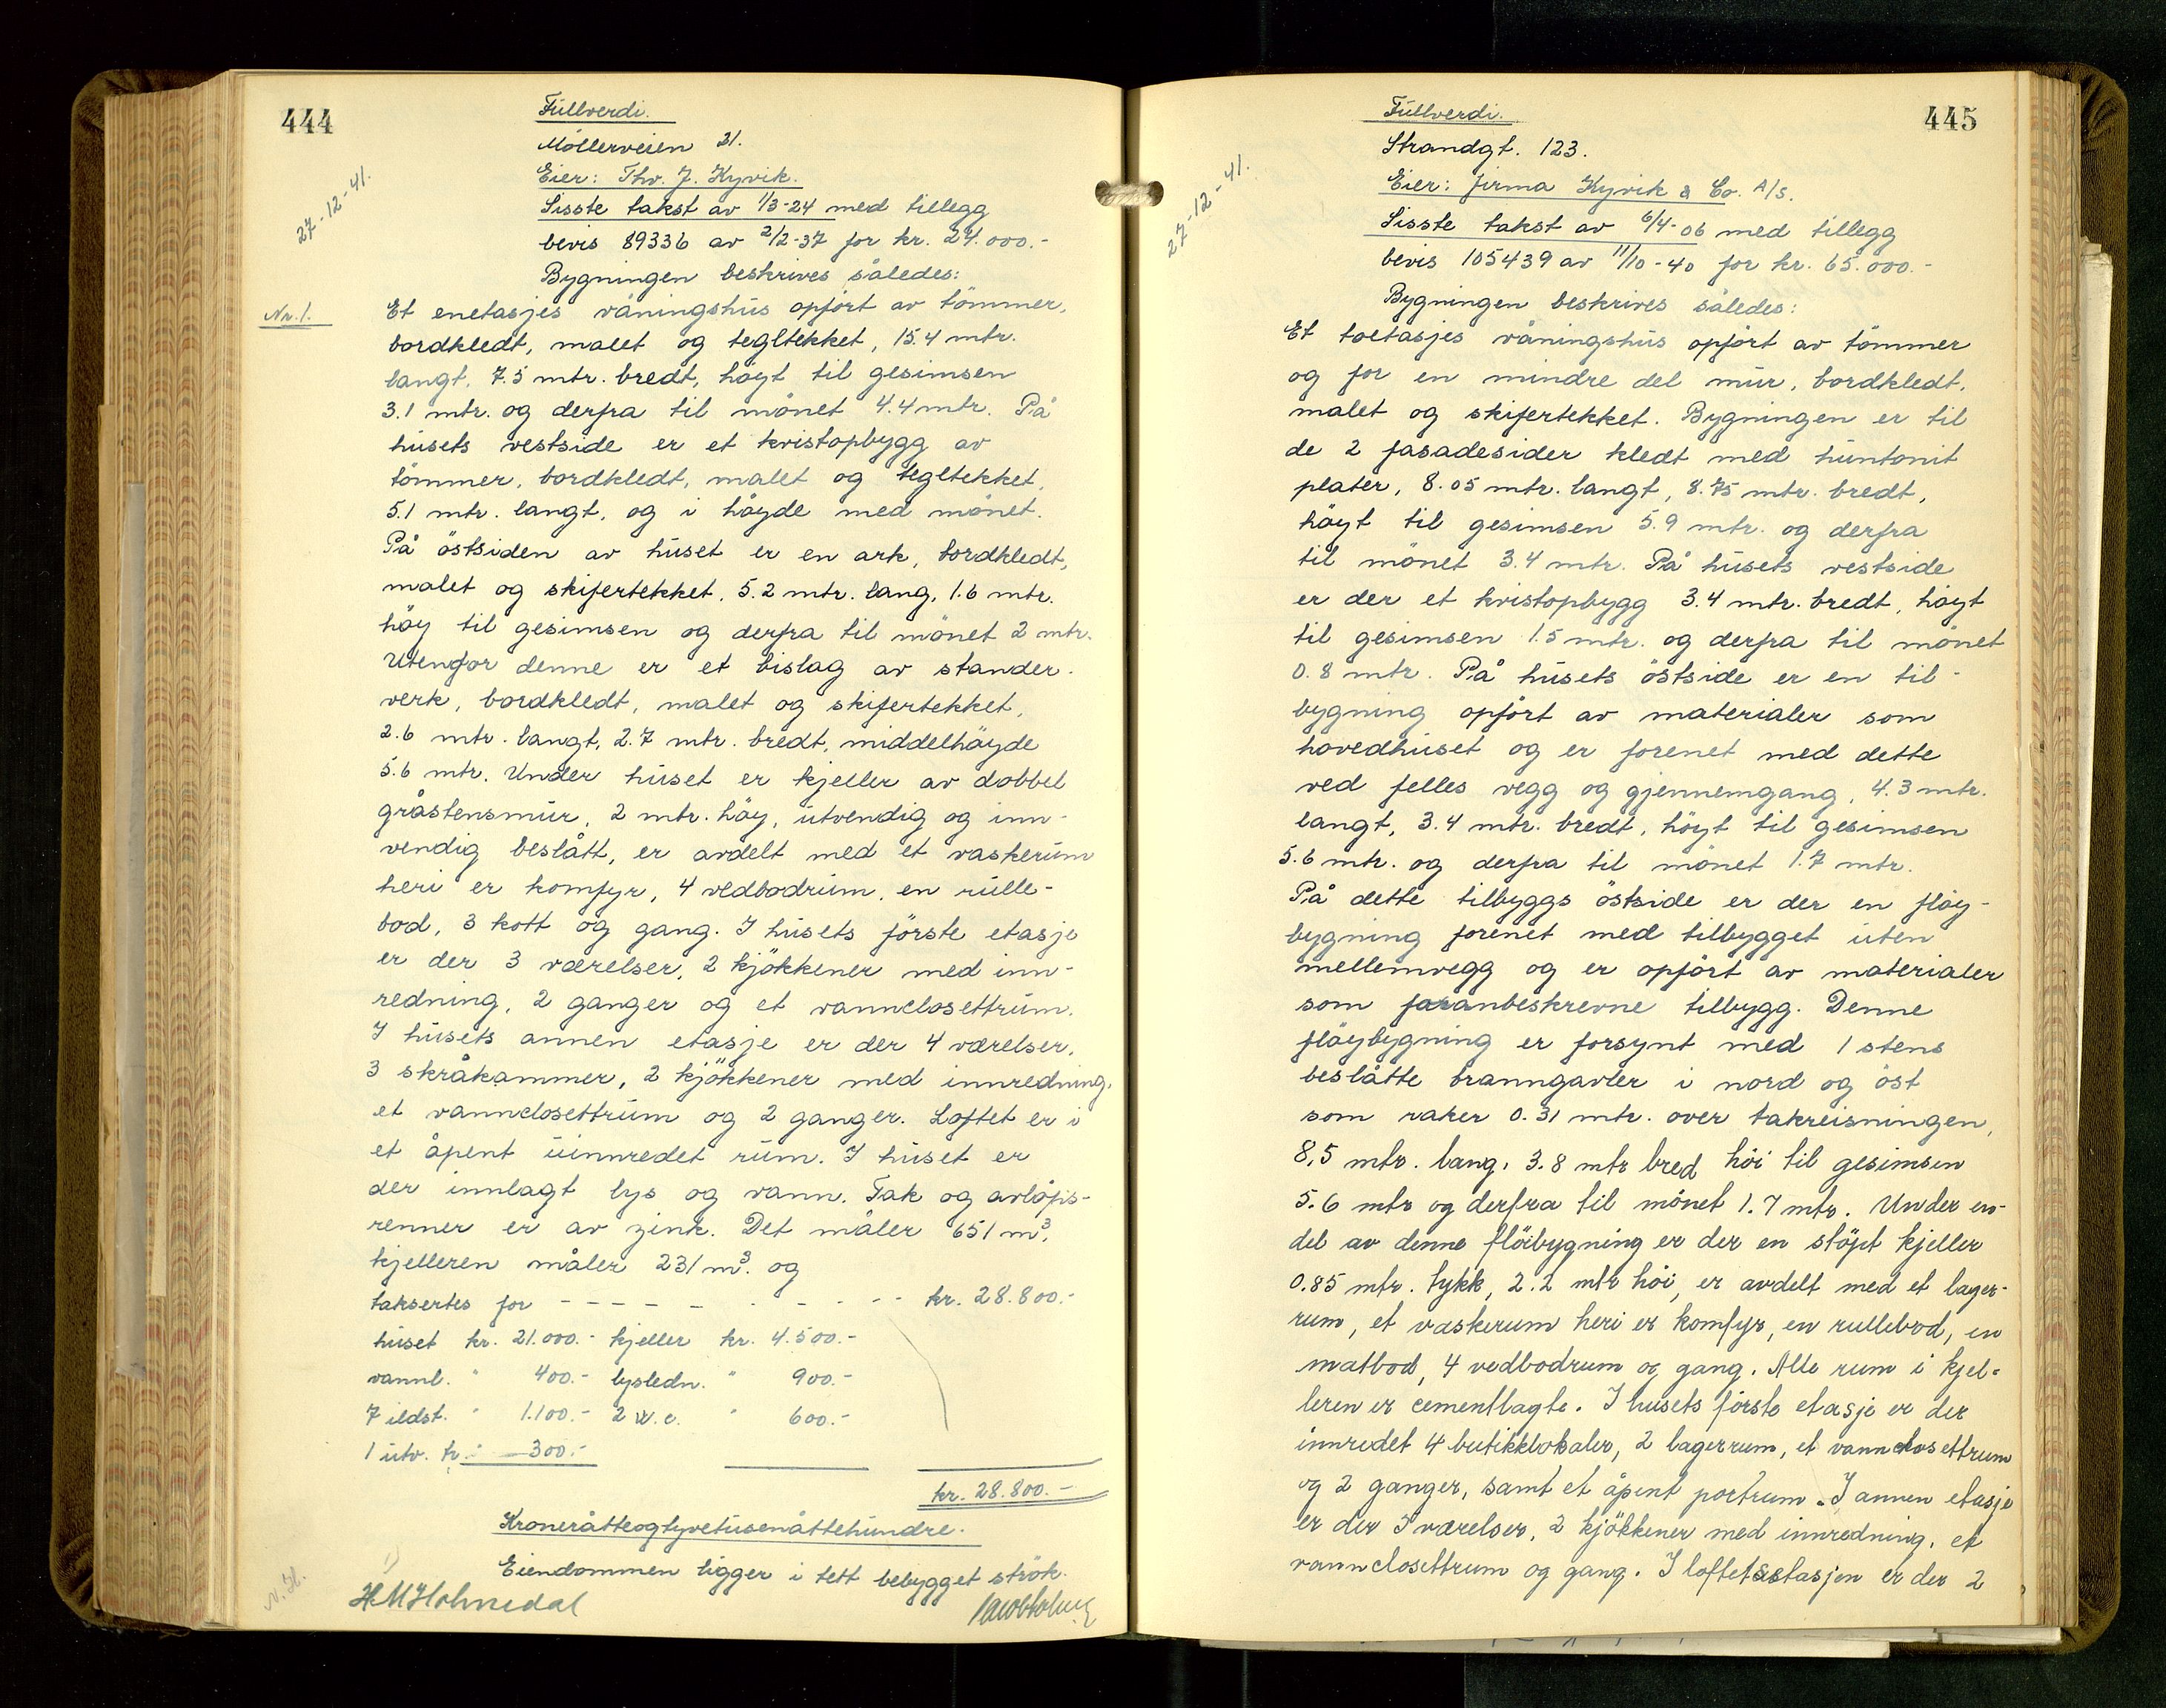 444
Fullverdi.
Möllerveien 21.
Eier: Thv. J. Kyvik.
27-12-41.
Sisste takst av 1/3-24 med tillegg
bevis 89336 av 2/2-37 for kr. 24.000.-
Bygningen beskrives således:
Nr. 1.
Et enetasjes våningshus opfört av tömmer,
bordkledt, malet og tegltekket, 15.4 mtr.
langt, 7.5 mtr. bredt, höyt til gesimsen
3.1 mtr. og derfra til mönet 4.4 mtr. På
husets vestside er et kvistopbygg av
tömmer, bordkledt, malet og tegltekket,
5.1 mtr. langt, og i höyde med mönet.
På östsiden av huset er en ark, bordkledt,
malet og skifertekket, 5.2 mtr. lang, 1.6 mtr.
höy til gesimsen og derfra til mönet 2 mtr.
Utenfor denne er et bislag av stander-
verk, bordkledt, malet og skifertekket,
2.6 mtr. langt, 2.7 mtr. bredt, middelhöyde
5.6 mtr. Under huset er kjeller av dobbel
gråstensmur, 2 mtr. höy, utvendig og inn-
vendig beslått, er avdelt med et vaskerum
heri er komfyr, 4 vedbodrum, en rulle-
bod, 3 kott og gang. I husets förste etasje
er der 3 værelser, 2 kjökkener med inn-
redning, 2 ganger og et vannclosettrum.
I husets annen etasje er der 4 værelser,
3 skråkammer, 2 kjökkener med innredning,
et vannclosettrum og 2 ganger. Loftet er i
et åpent uinnredet rum. I huset er
der innlagt lys og vann. Tak og avlöps-
renner er av zink. Det måler 651 m³,
kjelleren måler 231 m³. og
taksertes for - - - - - - - - - - kr. 28.800.-
huset kr. 21.000.- kjeller kr. 4.500.-
vannl. " 400.- lysledn. " 900.-
7 ildst. " 1.100.- 2 w.c. " 600.-
1 utv. tr. " 300.-
kr. 28.800.-
Kroneråtteogtyvetusenåttehundre.
Eiendommen ligger i tett bebygget strök.
445
Fullverdi.
Strandgt. 123.
Eier: Firma Kyvik & Co. A/S.
27-12-41.
Sisste takst av 6/4-06 med tillegg
bevis 105439 av 11/10-40 for kr. 65.000.-
Bygningen beskrives således:
Et toetasjes våningshus opfört av tömmer
og for en mindre del mur, bordkledt,
malet og skifertekket. Bygningen er til
de 2 fasadesider kledt med huntonit
plater, 8.05 mtr. langt, 8.75 mtr. bredt,
höyt til gesimsen 5.9 mtr. og derfra
til mönet 3.4 mtr. På husets vestside
er der et kvistopbygg 3.4 mtr. bredt, höyt
til gesimsen 1.5 mtr. og derfra til mönet
0.8 mtr. På husets östside er en til-
bygning opfört av materialer som
hovedhuset og er forenet med dette
ved felles vegg og gjennemgang, 4.3 mtr.
langt, 3.4 mtr. bredt, höyt til gesimsen
5.6 mtr. og derfra til mönet 1.7 mtr.
På dette tilbyggs östside er der en flöy-
bygning forenet med tilbygget uten
mellemvegg og er opfört av materialer
som foranbeskrevne tilbygg. Denne
flöybygning er forsynt med 1 stens
beslåtte branngavler i nord og öst
som raker 0.31 mtr. over takreisningen,
8,5 mtr. lang, 3.8 mtr bred höi til gesimsen
5.6 mtr og derfra til mönet 1.7 mtr. Under en-
del av denne flöibygning er der en stöpt kjeller
0.85 mtr. tykk, 2.2 mtr höi, er avdelt med et lager-
rum, et vaskerum heri er komfyr, en rullebod, en
matbod, 4 vedbodrum og gang. Alle rum i kjel-
leren er cementlagte. I husets förste etasje er der
innredet 4 butikklokaler, 2 lagerrum, et vannclosettrum
og 2 ganger, samt et åpent portrum. I annen etasje
er der 5 værelser, 2 kjökkener med innredning, et
vannclosettrum og gang. I loftetsetasjen er der 2